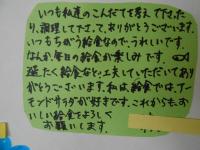 いつも私達のこんだてを考えてくださったり、
調理してくださって、ありがとうございます。
いつもちがう給食なので、うれしいです。
なんか、毎日の給食が楽しみです
たく給食などエ夫していただいてあり
がとうございます。私は、給食では、アー
モンドサラダが好きです。これからも、お
いしい給食をよろしく
お願いします。